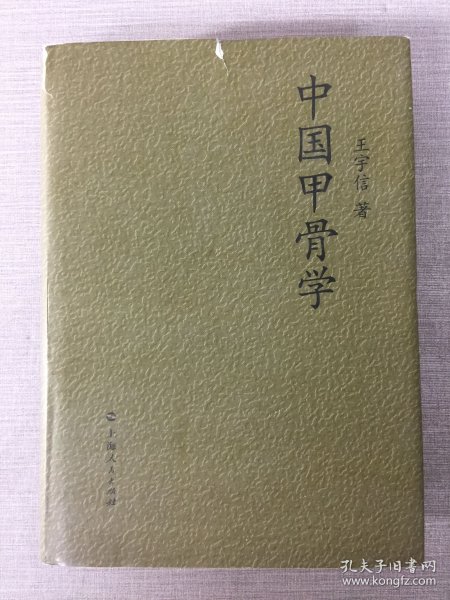 中国甲骨学
王宇信 著
上海人民出版社
孔夫子旧书网
www.kongfz.com